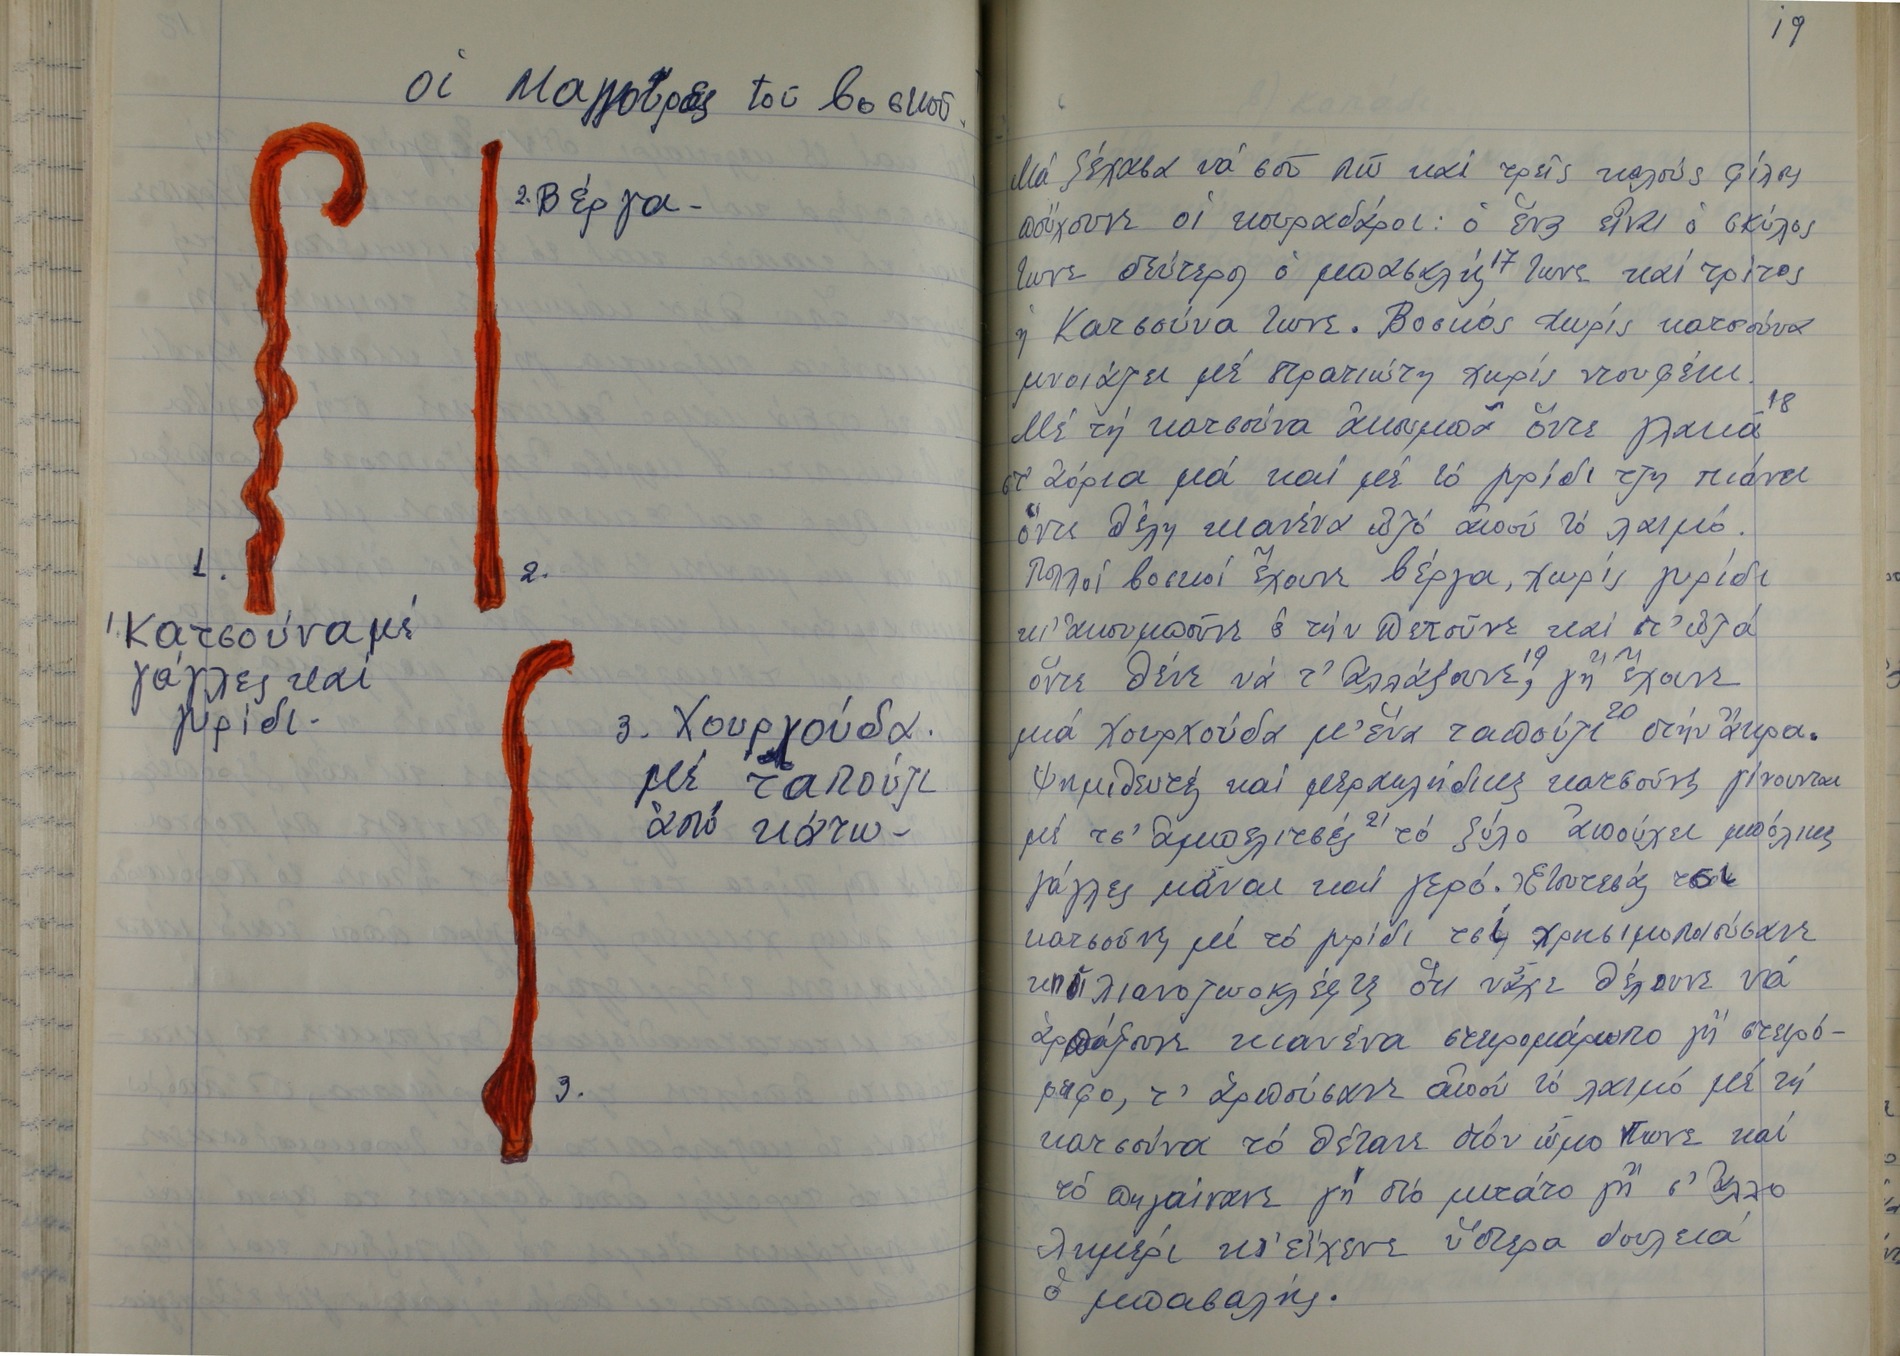 οἱ Μαγγοῦρες τοῦ βοσκοῦ.
2. Βέργα -
1.
2.
1. Κατσούνα μέ
γάγλες καί
γυρίδι -
3. Χουργούδα.
μέ ταπούζι
ἀπό κάτω -
3.
19
Μά ξέχασα νά σοῦ πῶ καί τρεῖς καλούς φίλους
ποὔχουνε οἱ κουραδάροι: ὁ ἕνας εἶναι ὁ σκύλος
τωνε δεύτερος ὁ μπασαλής¹⁷ τωνε καί τρίτος
ἡ Κατσούνα τωνε. Βοσκός χωρίς κατσούνα
μνοιάζει μέ στρατιώτη χωρίς ντουφέκι.
Μέ τή κατσούνα ἀκουμπᾶ ὅντε γλακᾶ¹⁸
στ' ἀόρια μά καί μέ τό γυρίδι τζη πιάνει
ὅντε θέλη κιανένα ὀζό ἀποὺ τό λαιμό.
Πολλοί βοσκοί ἔχουνε βέργα, χωρίς γυρίδι
κι' ἀκουμποῦνε ἤ τήν πετοῦνε καί στ' ὀζά
ὅντε θένε νά τ' ἀλλάξουνε¹⁹, γή ἔχουνε
μιά χουρχούδα μ' ἕνα ταπούζι²⁰ στήν ἄκρα.
Ψημιδευτές καί μερακλήδικες κατσούνες γίνουνται
μέ τσ' ἀμπελιτσές²¹ τό ξύλο ἀπούχει μπόλικες
γάγλες κἆναι καί γερό. Ἐτουτεσάς τσι
κατσούνες μέ τό γυρίδι τσί χρησιμοποιούσανε
κι οἱ λιανοζωοκλέφτες ὅτι νἆχε θέλουνε νά
ἁρπάξουνε κιανένα στειρομάρωπο γἤ στειρό-
ριφο, τ' ἁρπούσανε ἀποὺ τό λαιμό μέ τή
κατσούνα τό θέτανε στόν ὦμο τωνε καί
τό πηγαίνανε γή στό μιτάτο γἤ σ' ἄλλο
λημέρι κι' εἴχενε ὕστερα δουλειά
ὁ μπασαλής.